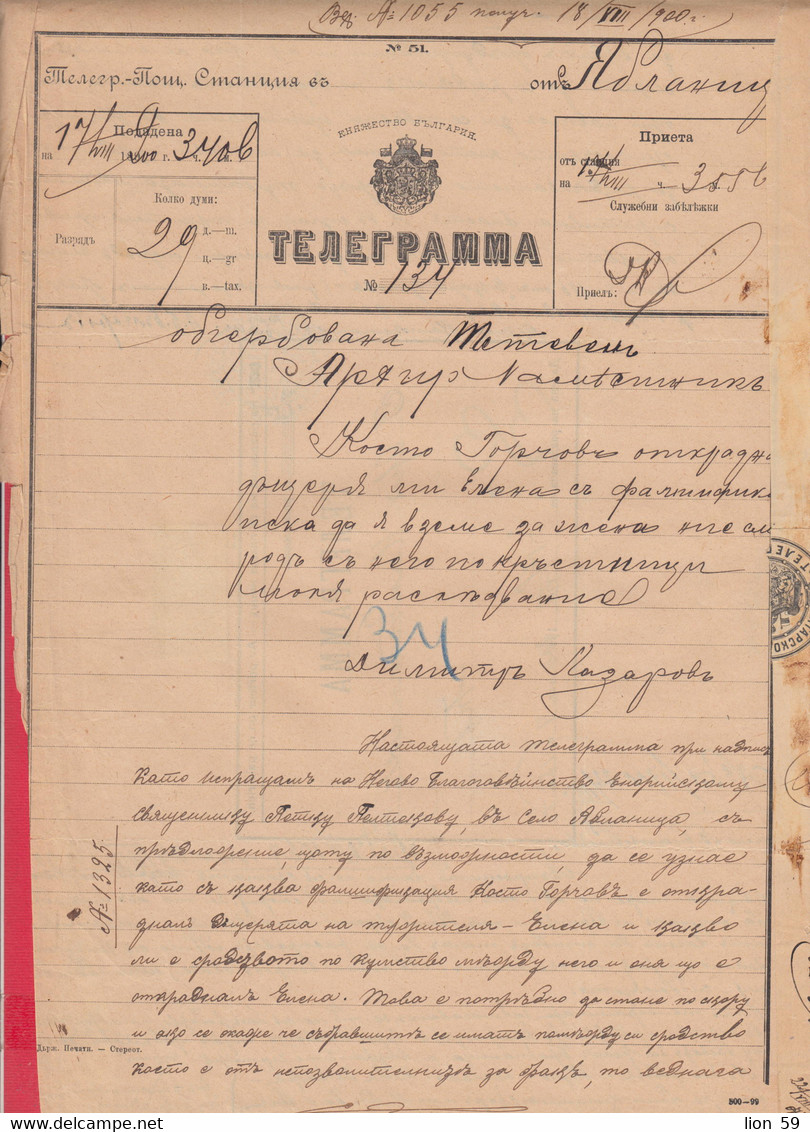 Вх. № 1055 получ. 18/VIII/900 г.
№ 51.
Телегр.-Пощ. Станция въ отъ Ябланиц
КНЯЖЕСТВО БЪЛГАРИЯ.
Подадена
на 17/VIII 1900 г. 3 ч. 40 м. в
Приета
отъ станция
на 17/VIII ч. 3 55 в
Колко думи:
Служебни забѣлѣжки
Разрядъ
29
д.—m.
ц.—gr
в.—tax.
ТЕЛЕГРАММА
№ 134
Приелъ:
обгербована Тетевенъ
Архиер Намѣстникъ
Косто Горчовъ открадна
дъщеря ми Елена съ фалшифик
иска да я вземе за жена ние см
родъ съ него по кръстници
моля раследвание
34
Димитръ Лазаровъ
Настоящата телеграмма при надпис
като испращамъ на Негово Благоговѣинство Енорийскому
священнику Петку Петкову, въ село Абланица, съ
прѣдложение, щото по възможности, да се узнае
като съ каква фалшификация Косто Горчовъ е откра-
дналъ дъщерята на тжжителя - Елена и какво
ли е сродството по кумство между него и оня що е
откраднатъ Елена. Това е потрѣбно да стане по скору
и ако се окаже че събравшитѣ се иматъ помежду си сродство
което е отъ непозволителнитѣ за бракъ, то веднага
№ 1325.
Държ. Печати. — Стереот.
800—99
lion 59